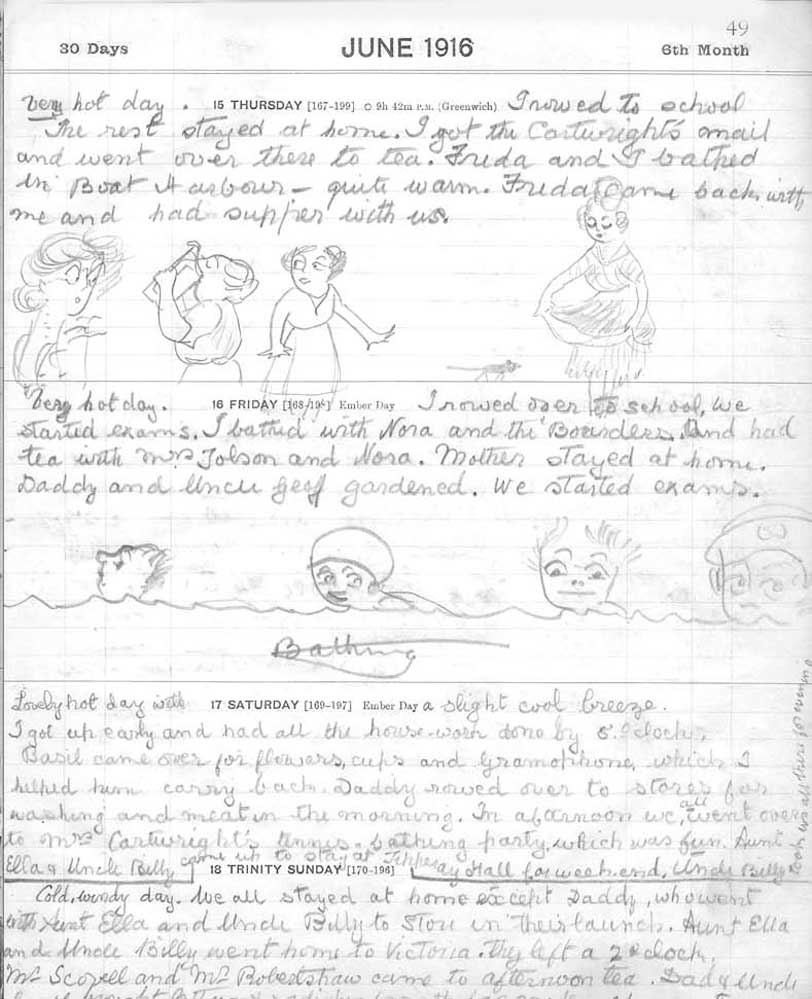 49
30 Days JUNE 1916 6th Month
Very hot day. 15 THURSDAY [167-199] ○ 9h 42m P.M. (Greenwich) I rowed to school
The rest stayed at home. I got the Cartwright's mail
and went over there to tea. Freda and I bathed
in Boat Harbour – quite warm. Freda came back with
me and had supper with us.
Very hot day. 16 FRIDAY [168-198] Ember Day I rowed over to school, we
started exams. I bathed with Nora and the Boarders. And had
tea with Mrs Tolson and Nora. Mother stayed at home.
Daddy and Uncle Geoff gardened. We started exams.
Bathing
Lovely hot day with 17 SATURDAY [169-197] Ember Day a slight cool breeze.
I got up early and had all the house-work done by 8. o'clock.
Basil came over for flowers, cups and Gramophone, which I
helped him carry back. Daddy rowed over to stores for
washing and meat in the morning. In afternoon we all went over
to Mrs Cartwright's tennis-bathing party, which was fun. Aunt
Ella & Uncle Billy came up to stay at Tipperary Hall for week-end, Uncle Billy
18 TRINITY SUNDAY [170-196]
Cold, windy day. We all stayed at home except Daddy, who went
with Aunt Ella and Uncle Billy to Store in their launch. Aunt Ella
and Uncle Billy went home to Victoria. They left a 2 o'clock.
Mr Scovell and Mr Robertshaw came to afternoon tea. Dad & Uncle